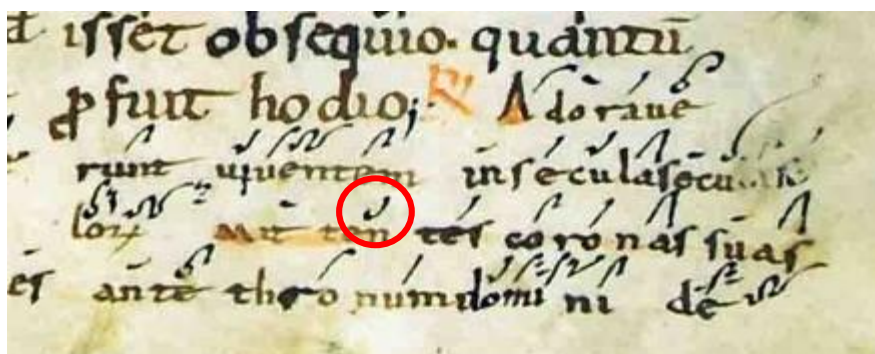 isset obsequio. quantū
ꝓfuit hodio; R̸ Adoraue
runt uiuentem insecula secu
lorꝝ Mit ten tes coronas suas
ante thro num domi ni de